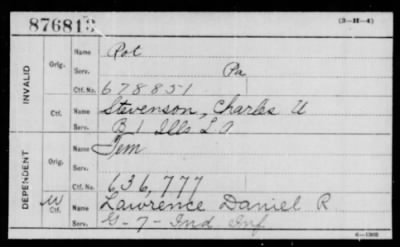 876813
(3-H-4)
INVALID
Orig.
Name
Serv. Pa
Ctf. No. 678851
Ctf.
Name Stevenson, Charles U
Serv. B 1 Ills L A
DEPENDENT
Orig.
Name
Serv.
Ctf. No. 636,777
W
Ctf.
Name Lawrence Daniel R
Serv. G-7-Ind Inf